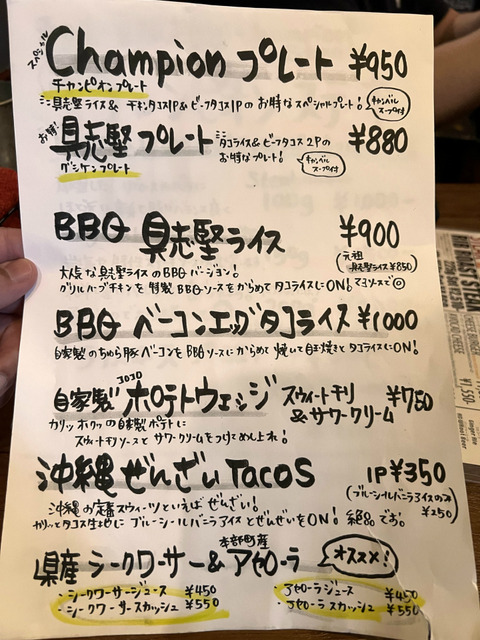 スペシャル
Champion プレート ¥950
チャンピオンプレート
具志堅ライス& チキンタコス1P & ビーフタコス1P の お得な スペシャルプレート!
キャンベルスープ付
お得!
具志堅 プレート ¥880
グシケンプレート
タコライス& ビーフタコス 2Pの
お得なプレート!
キャンベルスープ付
BBQ 具志堅ライス ¥900
(元祖 具志堅ライス¥850)
大人な具志堅ライスのBBQバージョン!
グリルハーブチキンを 特製BBQソースをからめて タコライスにON! マヨソースで◎
BBQ ベーコンエッグタコライス ¥1000
自家製のちゅら豚ベーコンをBBQソースにからめて 焼いて目玉焼きとタコライスにON!
JOJO
自家製 ポテトウェッジ スウィートチリ
&サワークリーム ¥750
カリッ ホクッの自家製ポテトに
スウィートチリソースと サワークリームをつけてめし上れ!
沖縄ぜんざいTacos 1P¥350
(ブルーシールバニラアイスのみ ¥250)
沖縄の定番スウィーツといえば ぜんざい!
カリッとタコス生地に ブルーシールバニラアイスとぜんざいをON! 絶品 です。
本部町産
県産 シークワーサー& アセローラ オススメ!
・シークワーサージュース ¥450
・シークワーサースカッシュ ¥550
・アセローラジュース ¥450
・アセローラスカッシュ ¥550